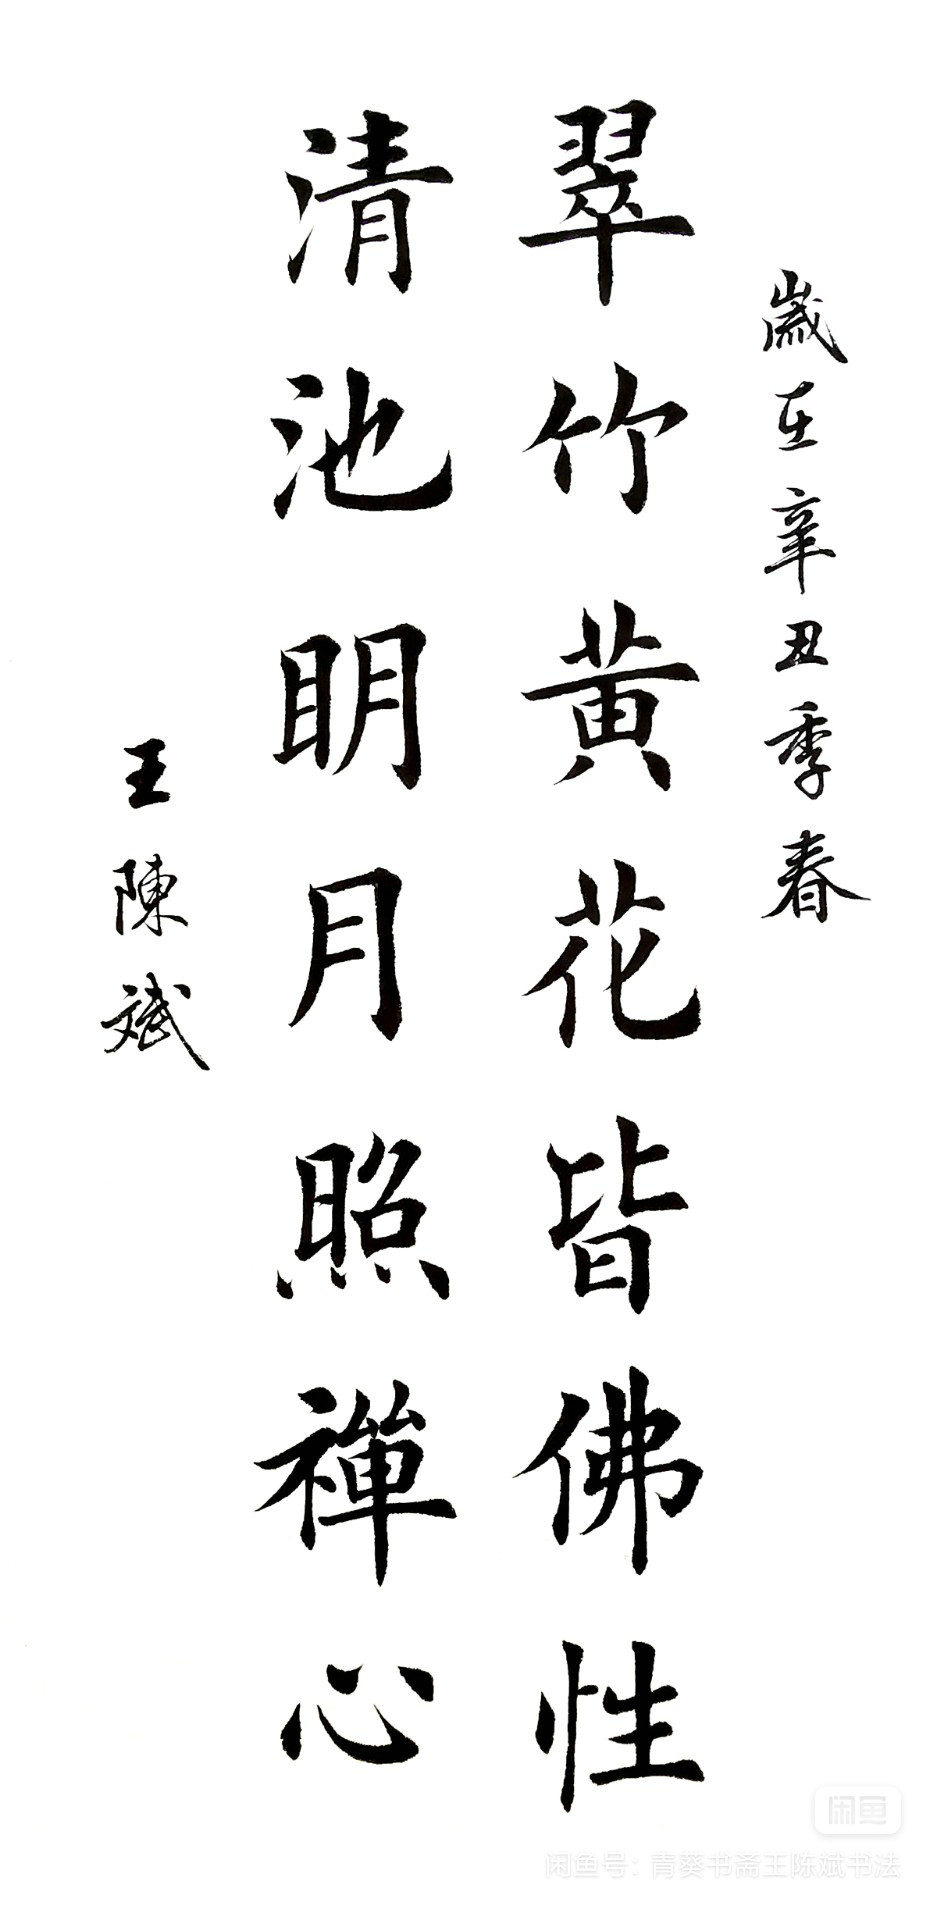 歲在辛丑季春
翠竹黄花皆佛性
清池明月照禪心
王陳斌
闲鱼
闲鱼号：青葵书斋王陈斌书法